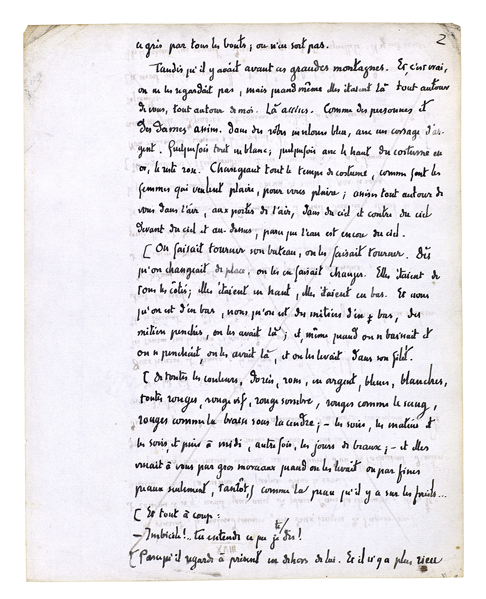 2
ce gris par tous les bouts ; on n'en sort pas.
Tandis qu'il y avait avant ces grandes montagnes. Et, c'est vrai,
on ne les regardait pas, mais quand même elles étaient là tout autour
de vous, tout autour de moi. Là assises. Comme des personnes et
des dames assises. Dans des robes en velours bleu, avec un corsage d'ar-
gent. Quelquefois tout en blanc ; quelquefois avec le haut du costume en
or, le reste rose. Changeant tout le temps de costume, comme font les
femmes qui veulent plaire, pour vous plaire ; assises tout autour de
vous dans l'air, aux portes de l'air, dans du ciel et contre du ciel
devant du ciel et au-dessus, parce que l'eau est encore du ciel.
[ On faisait tourner son bateau, on les faisait tourner. Dès
qu'on changeait de place, on les en faisait changer. Elles étaient de
tous les côtés ; elles étaient en haut, elles étaient en bas. Et nous
qu'on est d'en bas, nous qu'on est des métiers d'en bas, des
métiers penchés, on les avait là ; et, même quand on se baissait et
on se penchait, on les avait là, et on les levait dans son filet.
[ De toutes les couleurs, dorées, roses, en argent, bleues, blanches,
toutes rouges, rouge vif, rouge sombre, rouges comme le sang,
rouges comme la braise sous la cendre ; – les soirs, les matins et
les soirs, et puis à midi, autrefois, les jours de beaux ; – et elles
venait à vous par gros morceaux quand on les levait ou par fines
peaux seulement, tantôt, comme la peau qu'il y a sur les fruits...
[ Et tout à coup :
– Imbécile !.. Tu entends ce que je te dis !
[ Parce qu'il regarde à présent en dehors de lui. Et il n'y a plus rien